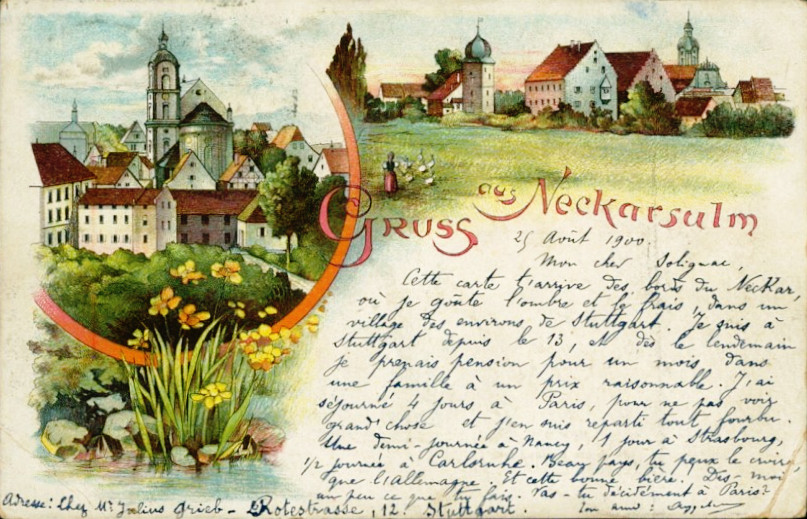 GRUSS aus Neckarsulm
25 Août 1900.
Mon cher Solignac,
Cette carte t'arrive des bords du Neckar,
où je goûte l'ombre et le frais, dans un
village des environs de Stuttgart. Je suis à
Stuttgart depuis le 13, et dès le lendemain
je prenais pension pour un mois dans
une famille à un prix raisonnable. J'ai
séjourné 4 jours à Paris, pour ne pas voir
grand'chose et j'en suis reparti tout fourbu.
Une demi-journée à Nancy, 1 jour à Strasbourg,
1/2 journée à Carlsruhe. Beau pays, tu peux le croire,
que l'Allemagne. Et cette bonne bière. Dis-moi
un peu ce que tu fais. Vas-tu décidément à Paris?
Ton ami:
Adresse: Chez Mr Julius Grieb - Rotestrasse, 12. Stuttgart.